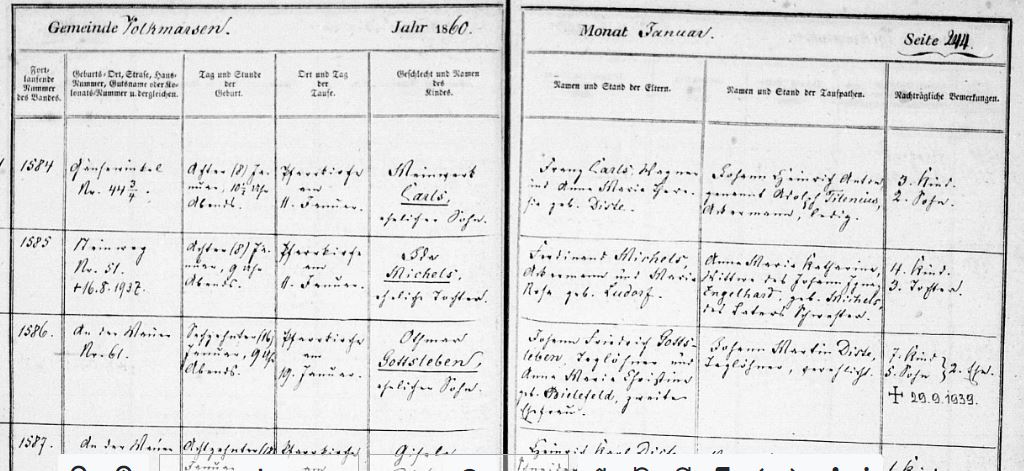 Gemeinde Volkmarsen. Jahr 1860. Monat Januar. Seite 244.
Fort-
laufende
Nummer
des Bandes.
Geburts-Ort, Straße, Haus-
Nummer, Gutsname oder Ko-
lonats-Nummer u. dergleichen.
Tag und Stunde
der
Geburt.
Ort und Tag
der
Taufe.
Geschlecht und Namen
des
Kindes.
Namen und Stand der Eltern.
Namen und Stand der Taufpathen.
Nachträgliche Bemerkungen.
1584
Gänsewinkel
Nr. 44 3/4.
Achter (8) Ja-
nuar, Uhr
Abends.
Pfarrkirche
am
11. Januar.
Meinwerk
Carls,
ehelicher Sohn.
Franz Carls, Wagner
und Anna Maria There-
sia geb. Diste.
Johann Heinrich Anton
genannt Adolf Tilenius,
Ackermann, ledig.
3. Kind.
2. Sohn.
1585
Steinweg
Nr. 51.
+16.8.1937.
Achter (8) Ja-
nuar, 9 Uhr
Abends.
Pfarrkirche
am
11. Januar.
Ida
Michels,
eheliche Tochter.
Ferdinand Michels,
Ackermann und Maria
Rosa geb. Ludorf.
Anna Maria Katharina,
Wittwe des Johann
Engelhard, geb. Michels,
des Vaters Schwester.
4. Kind.
3. Tochter.
1586
An der Mauer
Nr. 61.
Sechzehnter (16)
Januar, 9 Uhr
Abends.
Pfarrkirche
am
19. Januar.
Othmar
Gottsleben,
ehelicher Sohn.
Johann Friedrich Gotts-
leben, Taglöhner und
Anna Maria Christina
geb. Bielefeld, zweite
Ehefrau.
Johann Martin Diste,
Taglöhner, verehlicht.
7. Kind
5. Sohn } 2. Ehe.
† 29.9.1939.
1587.
An der Mauer
Achtzehnter (18)
Januar
Pfarrkirche
am
Gisela
Heinrich Karl Diste